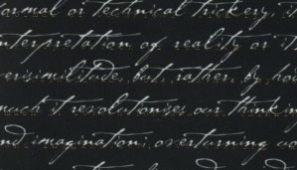 formal or technical trickery, it
interpretation of reality or it
verisimilitude, but rather by how
much it revolutionises our thinking
and imagination, overturning